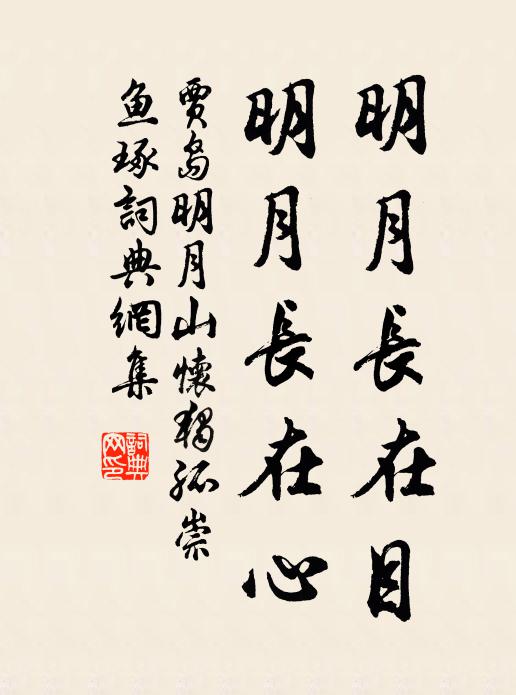 明月長在目
明月長在心
賈島明月山懷獨孤崇
魚琢詞典網集
詞典網印